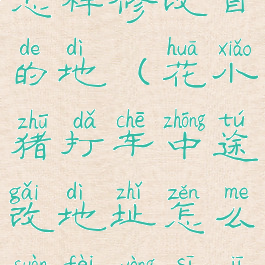 de dì huā xiǎo
的地（花小
zhū dǎ chē zhōng tú
猪打车中途
gǎi dì zhǐ zěn me
改地址怎么